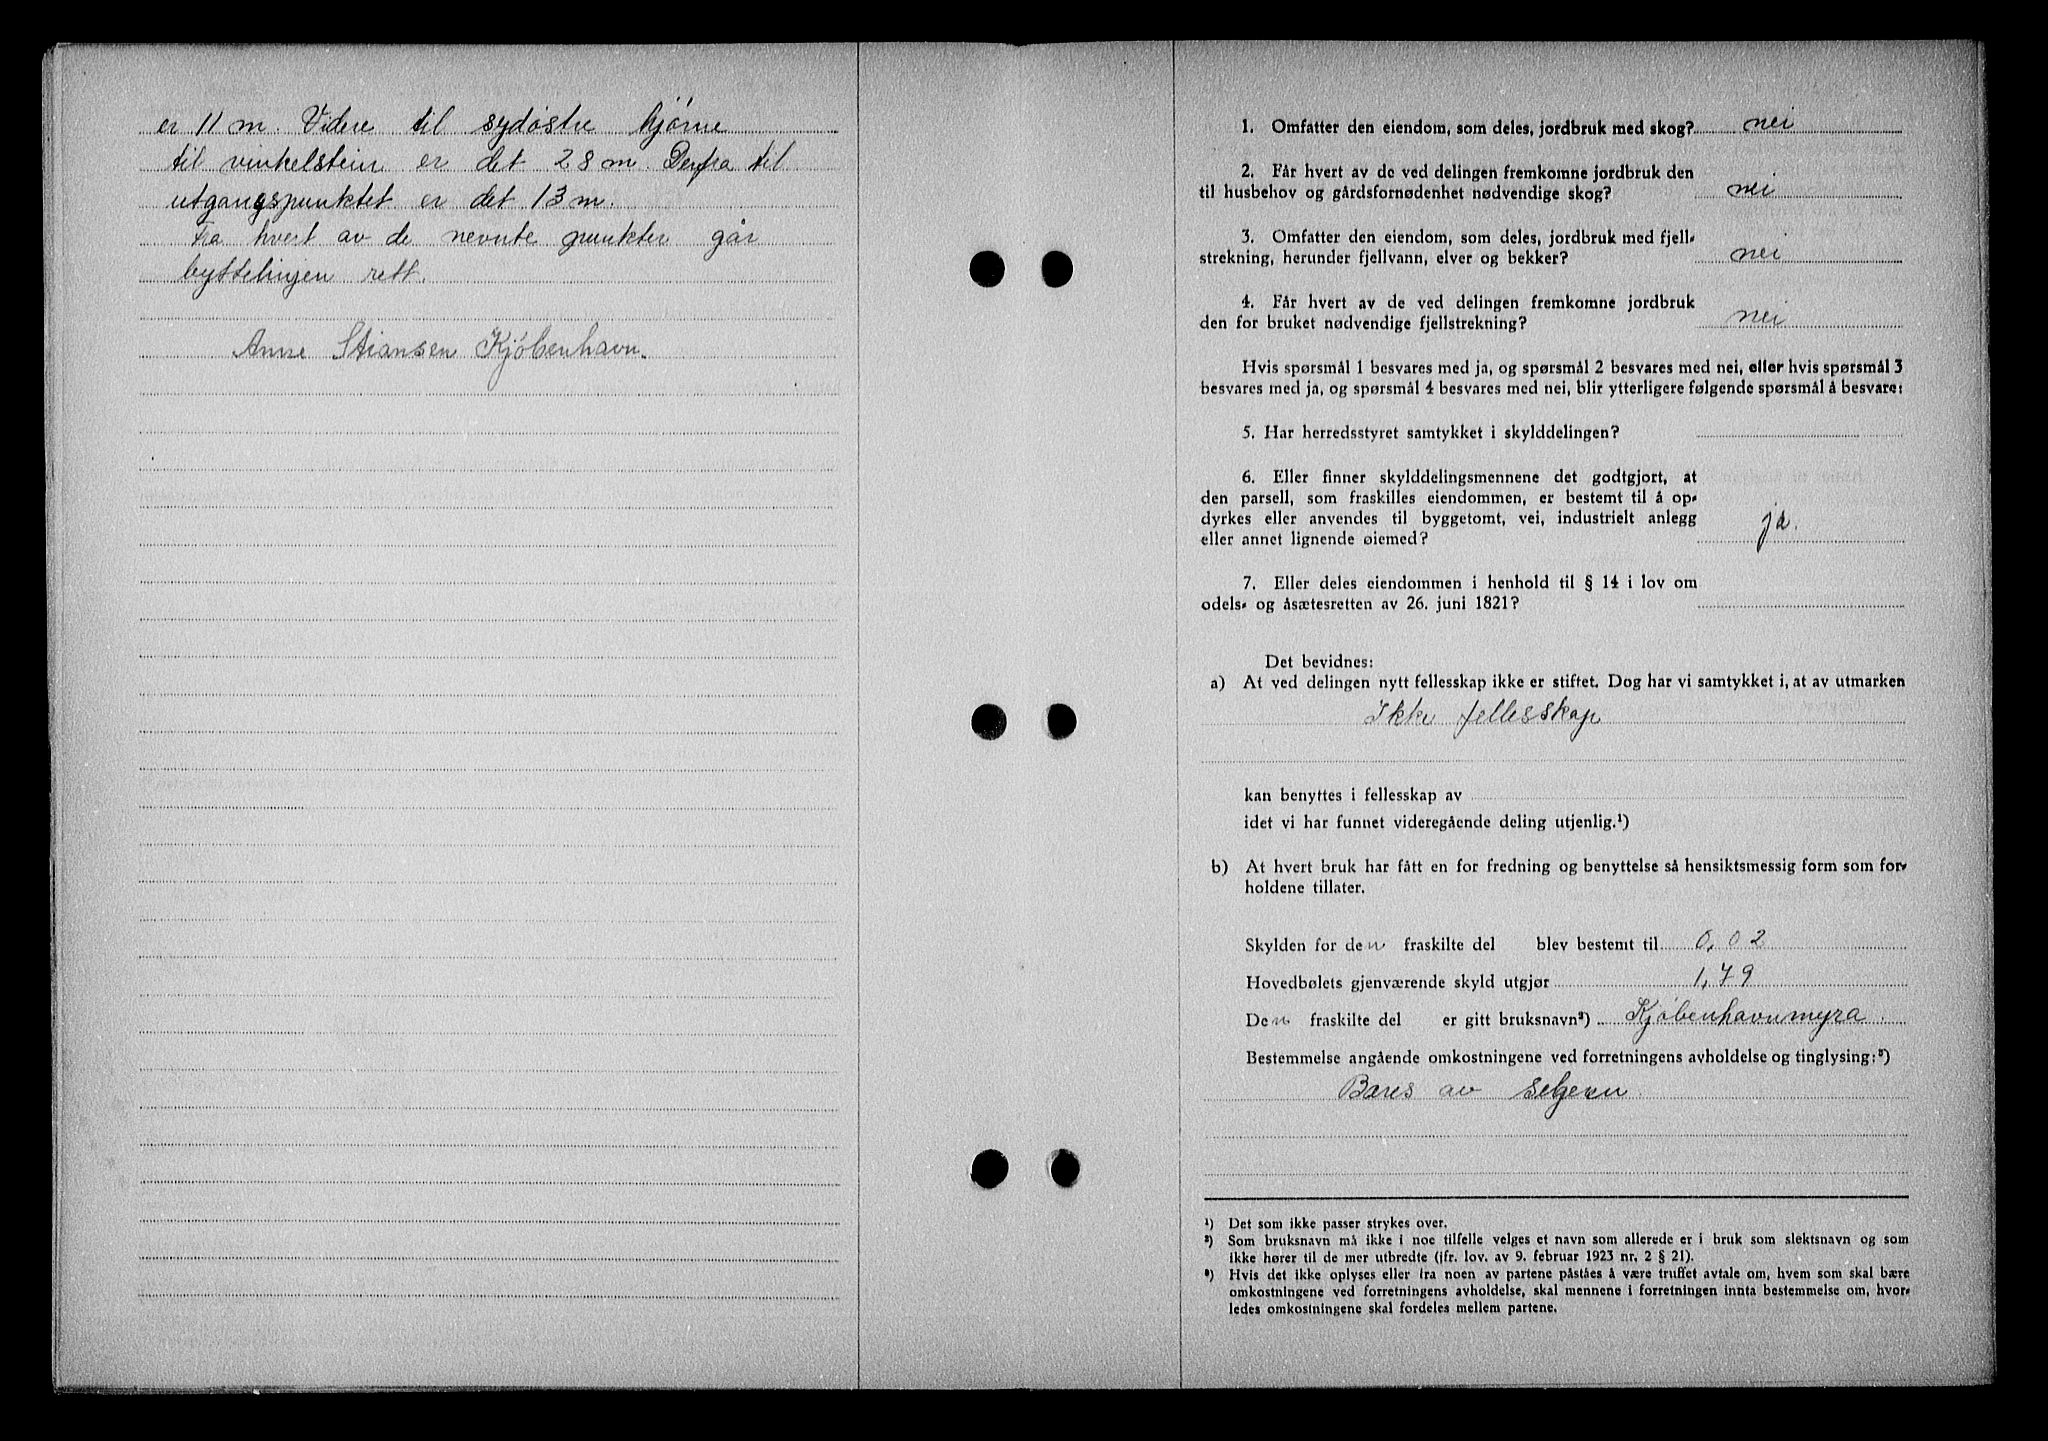 er 11 m. Videre til sydøstre hjørne
til vinkelstein er det 28 m. Derfra til
utgangspunktet er det 13 m.
Fra hvert av de nevnte punkter går
byttelinjen rett.
Anne Stiansen Kjöbenhavn.
1. Omfatter den eiendom, som deles, jordbruk med skog? nei
2. Får hvert av de ved delingen fremkomne jordbruk den
til husbehov og gårdsfornødenhet nødvendige skog? nei
3. Omfatter den eiendom, som deles, jordbruk med fjell-
strekning, herunder fjellvann, elver og bekker? nei
4. Får hvert av de ved delingen fremkomne jordbruk
den for bruket nødvendige fjellstrekning? nei
Hvis spørsmål 1 besvares med ja, og spørsmål 2 besvares med nei, eller hvis spørsmål 3
besvares med ja, og spørsmål 4 besvares med nei, blir ytterligere følgende spørsmål å besvare:
5. Har herredsstyret samtykket i skylddelingen?
6. Eller finner skylddelingsmennene det godtgjort, at
den parsell, som fraskilles eiendommen, er bestemt til å op-
dyrkes eller anvendes til byggetomt, vei, industrielt anlegg
eller annet lignende øiemed? ja.
7. Eller deles eiendommen i henhold til § 14 i lov om
odels- og åsætesretten av 26. juni 1821?
Det bevidnes:
a) At ved delingen nytt fellesskap ikke er stiftet. Dog har vi samtykket i, at av utmarken
Ikke fellesskap
kan benyttes i fellesskap av
idet vi har funnet videregående deling utjenlig.¹)
b) At hvert bruk har fått en for fredning og benyttelse så hensiktsmessig form som for-
holdene tillater.
Skylden for den fraskilte del blev bestemt til 0,02
Hovedbølets gjenværende skyld utgjør 1,79
Den fraskilte del er gitt bruksnavn²) Kjöbenhavnmyra.
Bestemmelse angående omkostningene ved forretningens avholdelse og tinglysing:³)
Bæres av selgeren.
¹) Det som ikke passer strykes over.
²) Som bruksnavn må ikke i noe tilfelle velges et navn som allerede er i bruk som slektsnavn og som
ikke hører til de mer utbredte (jfr. lov. av 9. februar 1923 nr. 2 § 21).
³) Hvis det ikke oplyses eller fra noen av partene påståes å være truffet avtale om, hvem som skal bære
omkostningene ved forretningens avholdelse, skal mennene i forretningen innta bestemmelse om, hvor-
ledes omkostningene skal fordeles mellem partene.